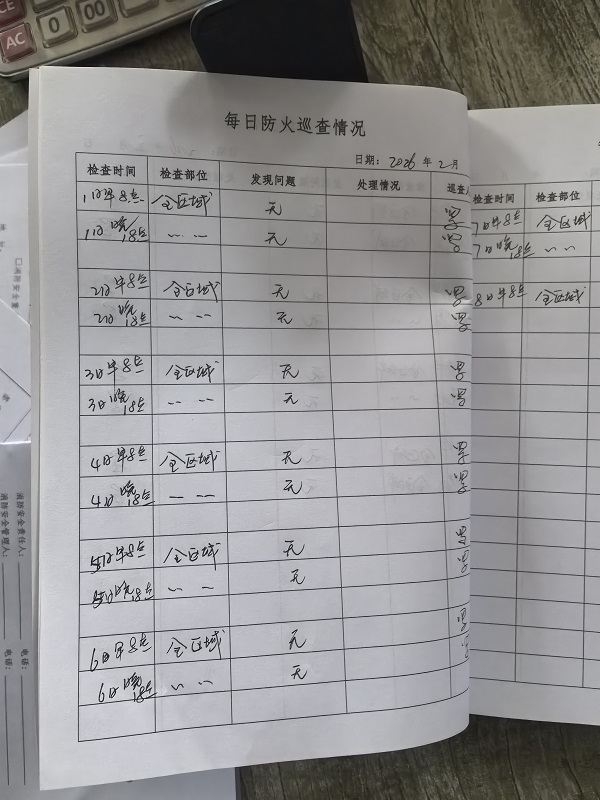 CE
AC
0
00
每日防火巡查情况
日期: 2026 年 2 月
检查时间 检查部位 发现问题 处理情况 巡查人
1日早8点 全区域 无
1日晚18点 〃 〃 无
2日早8点 全区域 无
2日晚18点 〃 〃 无
3日早8点 全区域 无
3日晚18点 〃 〃 无
4日早8点 全区域 无
4日晚18点 〃 〃 无
5日早8点 全区域 无
5日晚18点 〃 〃 无
6日早8点 全区域 无
6日晚18点 〃 〃 无
检查时间 检查部位
7日早8点 全区域
7日晚18点 〃 〃
8日早8点 全区域
消防安全责任人: 电话:
消防安全管理人: 电话: